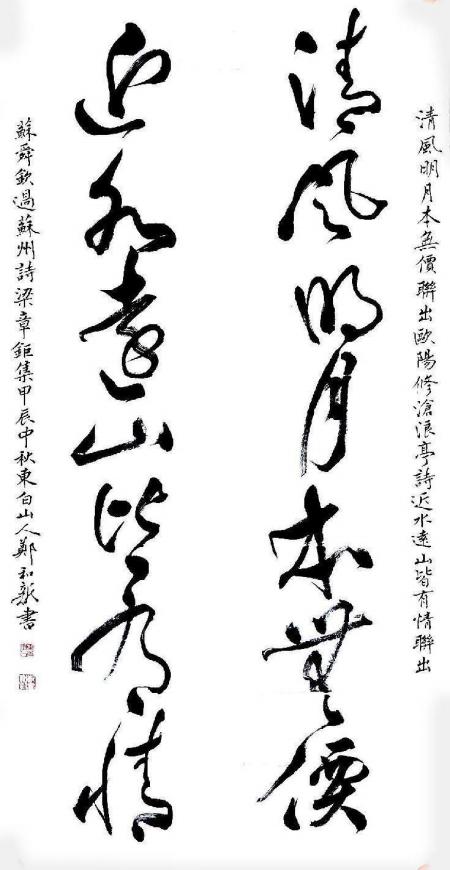 清風明月本無價聯出歐陽修滄浪亭詩近水遠山皆有情聯出
清風明月本無價
近水遠山皆有情
蘇舜欽過蘇州詩梁章鉅集甲辰中秋東白山人鄭和新書